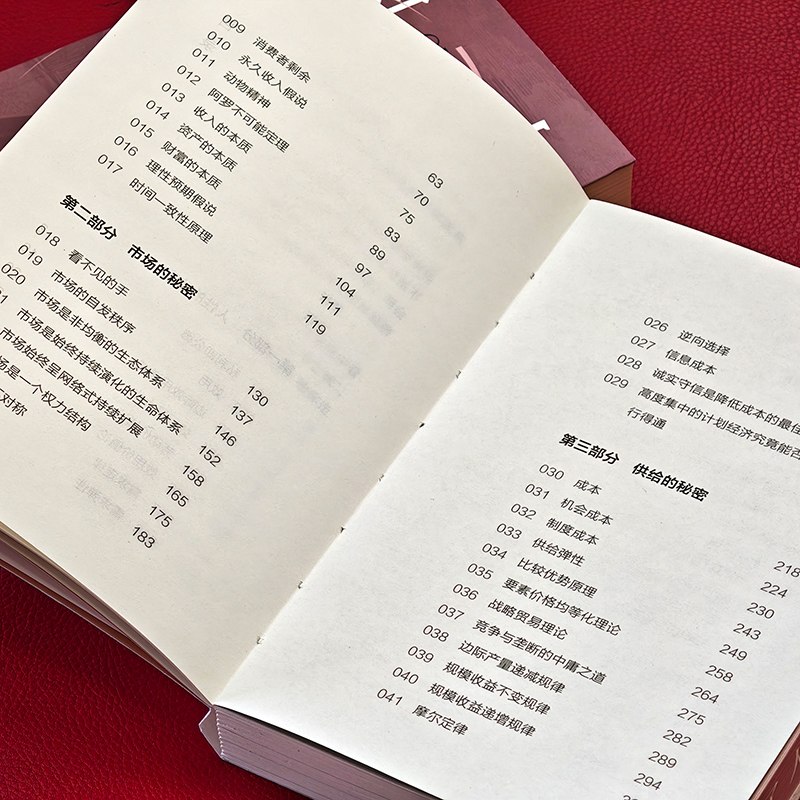 009 消费者剩余 63
010 永久收入假说 70
011 动物精神 75
012 阿罗不可能定理 83
013 收入的本质 89
014 资产的本质 97
015 财富的本质 104
016 理性预期假说 111
017 时间一致性原理 119
第二部分 市场的秘密
018 看不见的手 130
019 市场的自发秩序 137
020 市场是非均衡的生态体系 146
市场是始终持续演化的生命体系 152
市场始终呈网络式持续扩展 158
场是一个权力结构 165
对称 175
183
026 逆向选择
027 信息成本
028 诚实守信是降低成本的最佳
029 高度集中的计划经济究竟能否
行得通
第三部分 供给的秘密
030 成本 218
031 机会成本 224
032 制度成本 230
033 供给弹性 243
034 比较优势原理 249
035 要素价格均等化理论 258
036 战略贸易理论 264
037 竞争与垄断的中庸之道 275
038 边际产量递减规律 282
039 规模收益不变规律 289
040 规模收益递增规律 294
041 摩尔定律